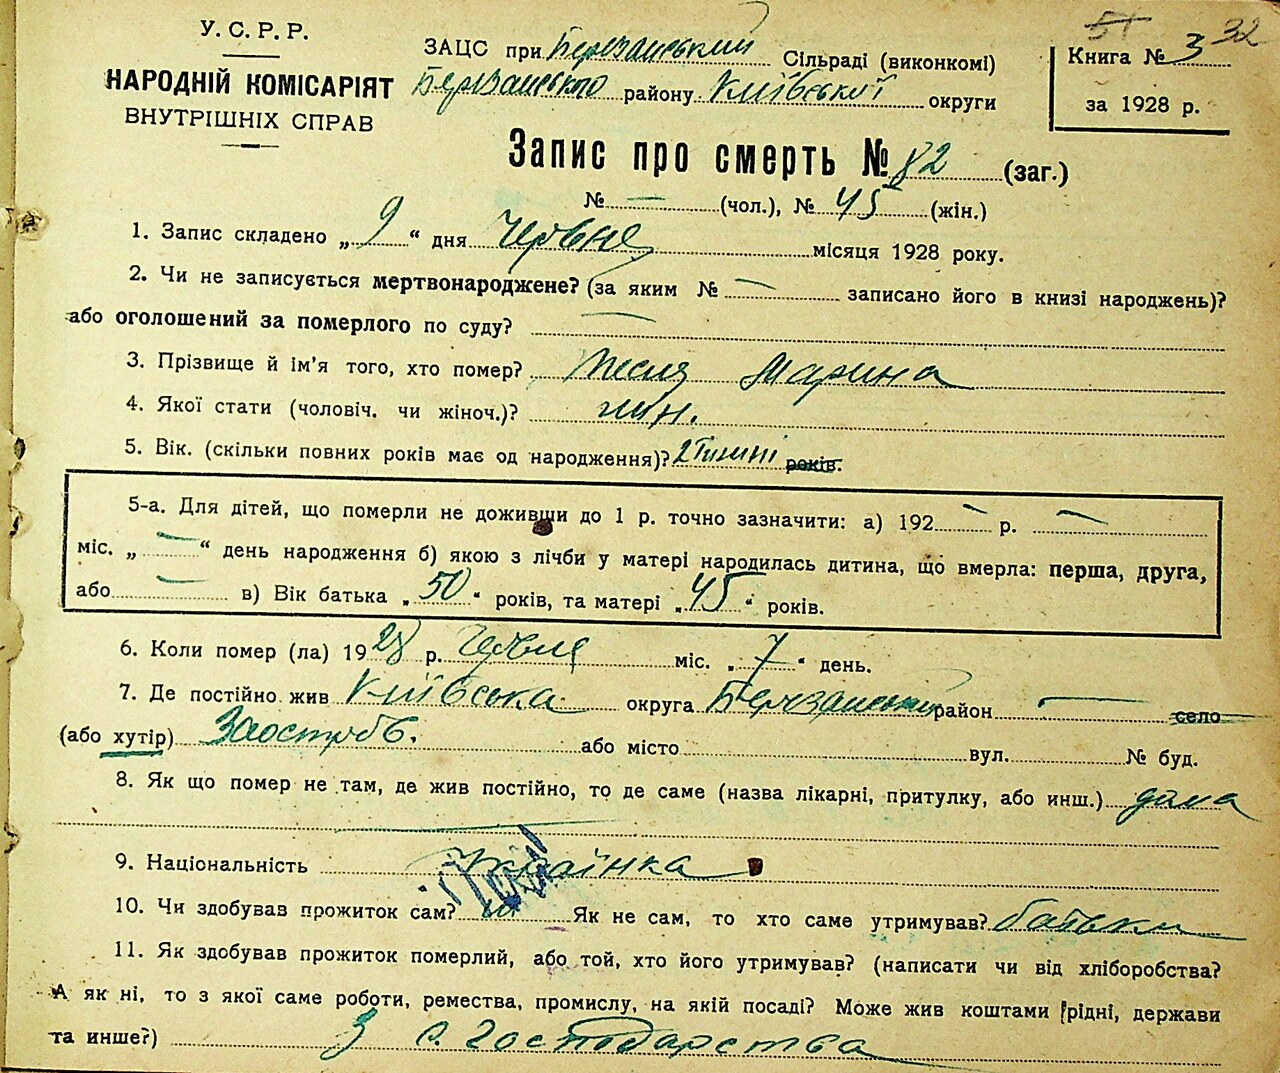 У. С. Р. Р.
НАРОДНІЙ КОМІСАРІЯТ
ВНУТРІШНІХ СПРАВ
ЗАЦС при Березанський Сільраді (виконкомі)
Березанського району Київської округи
51 32
Книга № 3
за 1928 р.
Запис про смерть № 82 (заг.)
№ — (чол.), № 45 (жін.)
1. Запис складено „ 9 “ дня Червня місяця 1928 року.
2. Чи не записується мертвонароджене? (за яким № — записано його в книзі народжень)?
або оголошений за померлого по суду? —
3. Прізвище й ім'я того, хто помер? Марина
4. Якої стати (чоловіч. чи жіноч.)? жін.
5. Вік. (скільки повних років має од народження)? 2 Тижні років.
5-а. Для дітей, що померли не доживши до 1 р. точно зазначити: а) 192 — р. —
міс. „ — “ день народження б) якою з лічби у матері народилась дитина, що вмерла: перша, друга,
або — в) Вік батька „ 50 “ років, та матері „ 45 “ років.
6. Коли помер (ла) 1928 р. Червня міс. „ 7 “ день.
7. Де постійно жив Київська округа Березанський район — село
(або хутір) або місто вул. № буд.
8. Як що помер не там, де жив постійно, то де саме (назва лікарні, притулку, або инш.) дома
9. Національність Українка
10. Чи здобував прожиток сам? ні Як не сам, то хто саме утримував? батьки
11. Як здобував прожиток померлий, або той, хто його утримував? (написати чи від хліборобства?
А як ні, то з якої саме роботи, ремества, промислу, на якій посаді? Може жив коштами рідні, держави
та инше?) З с. господарства